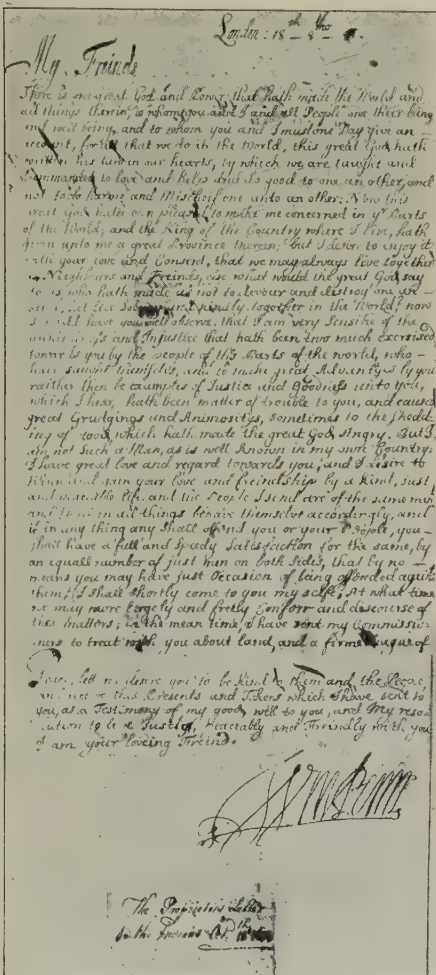 London: 18th 8mo
My Freinds
There is one great God and Power that hath made the World and
all things therein, to whom you and I and all People owe their being
and well being, and to whom you and I must one Day give an
account, for all that we do in the World, this great God hath
written his law in our hearts, by which we are taught and
Commanded to love and help and do good to one an other, and
not to do harme and Mischeif one unto an other; Now this
great god hath been pleased to make me concerned in yr Parts
of the World; and the King of the Country where I live, hath
given unto me a great Province therein; but I desire to enjoy it
with your love and Consent, that we may always live together
as Neighbours and freinds, else what would the great God say
to us, who hath made us not to devour and destroy one an-
other but live Soberly and kindly together in the World; now
I would have you well observe, that I am very Sensible of the
unkindness and Injustice that hath been too much exersised
towards you by the People of thes Parts of the world, who
have sought themselves, and to make great Advantages by you
raither then be examples of Justice and Goodness unto you,
which I hear, hath been matter of trouble to you, and caused
great Grudgings und Animosityes, sometimes to the shedd-
ing of blood, which hath made the great God Angry. But I
am not Such a Man, as is well Known in my own Country:
I have great love and regard towards you, and I desire to
Winn and gain your love and freindship by a Kind, just
and peaceable life; and the People I send are of the same mind
and shall in all things behave themselves accordingly, and
if in any thing any Shall offend you or your People, you
shall have a full and Speedy Satisfaction for the same, by
an equall number of just men on both sides, that by no
means you may have just Occasion of being offended against
them; I shall shortly come to you my selfe. At what time
we may more largely and freely Conferr and discourse of
thes Matters; in the mean time, I have sent my Commissio-
ners to treat with you about land, and a firme league of
Peace, lett me desire you to be kind to them and the People,
and receive thes Presents and Tokens which I have sent to
you, as a Testimony of my good will to you, and My reso-
lution to live Justly, Peaceably and Freindly with you
I am your loveing Freind.
Wm Penn
The Proprietors Letter
to the Indians